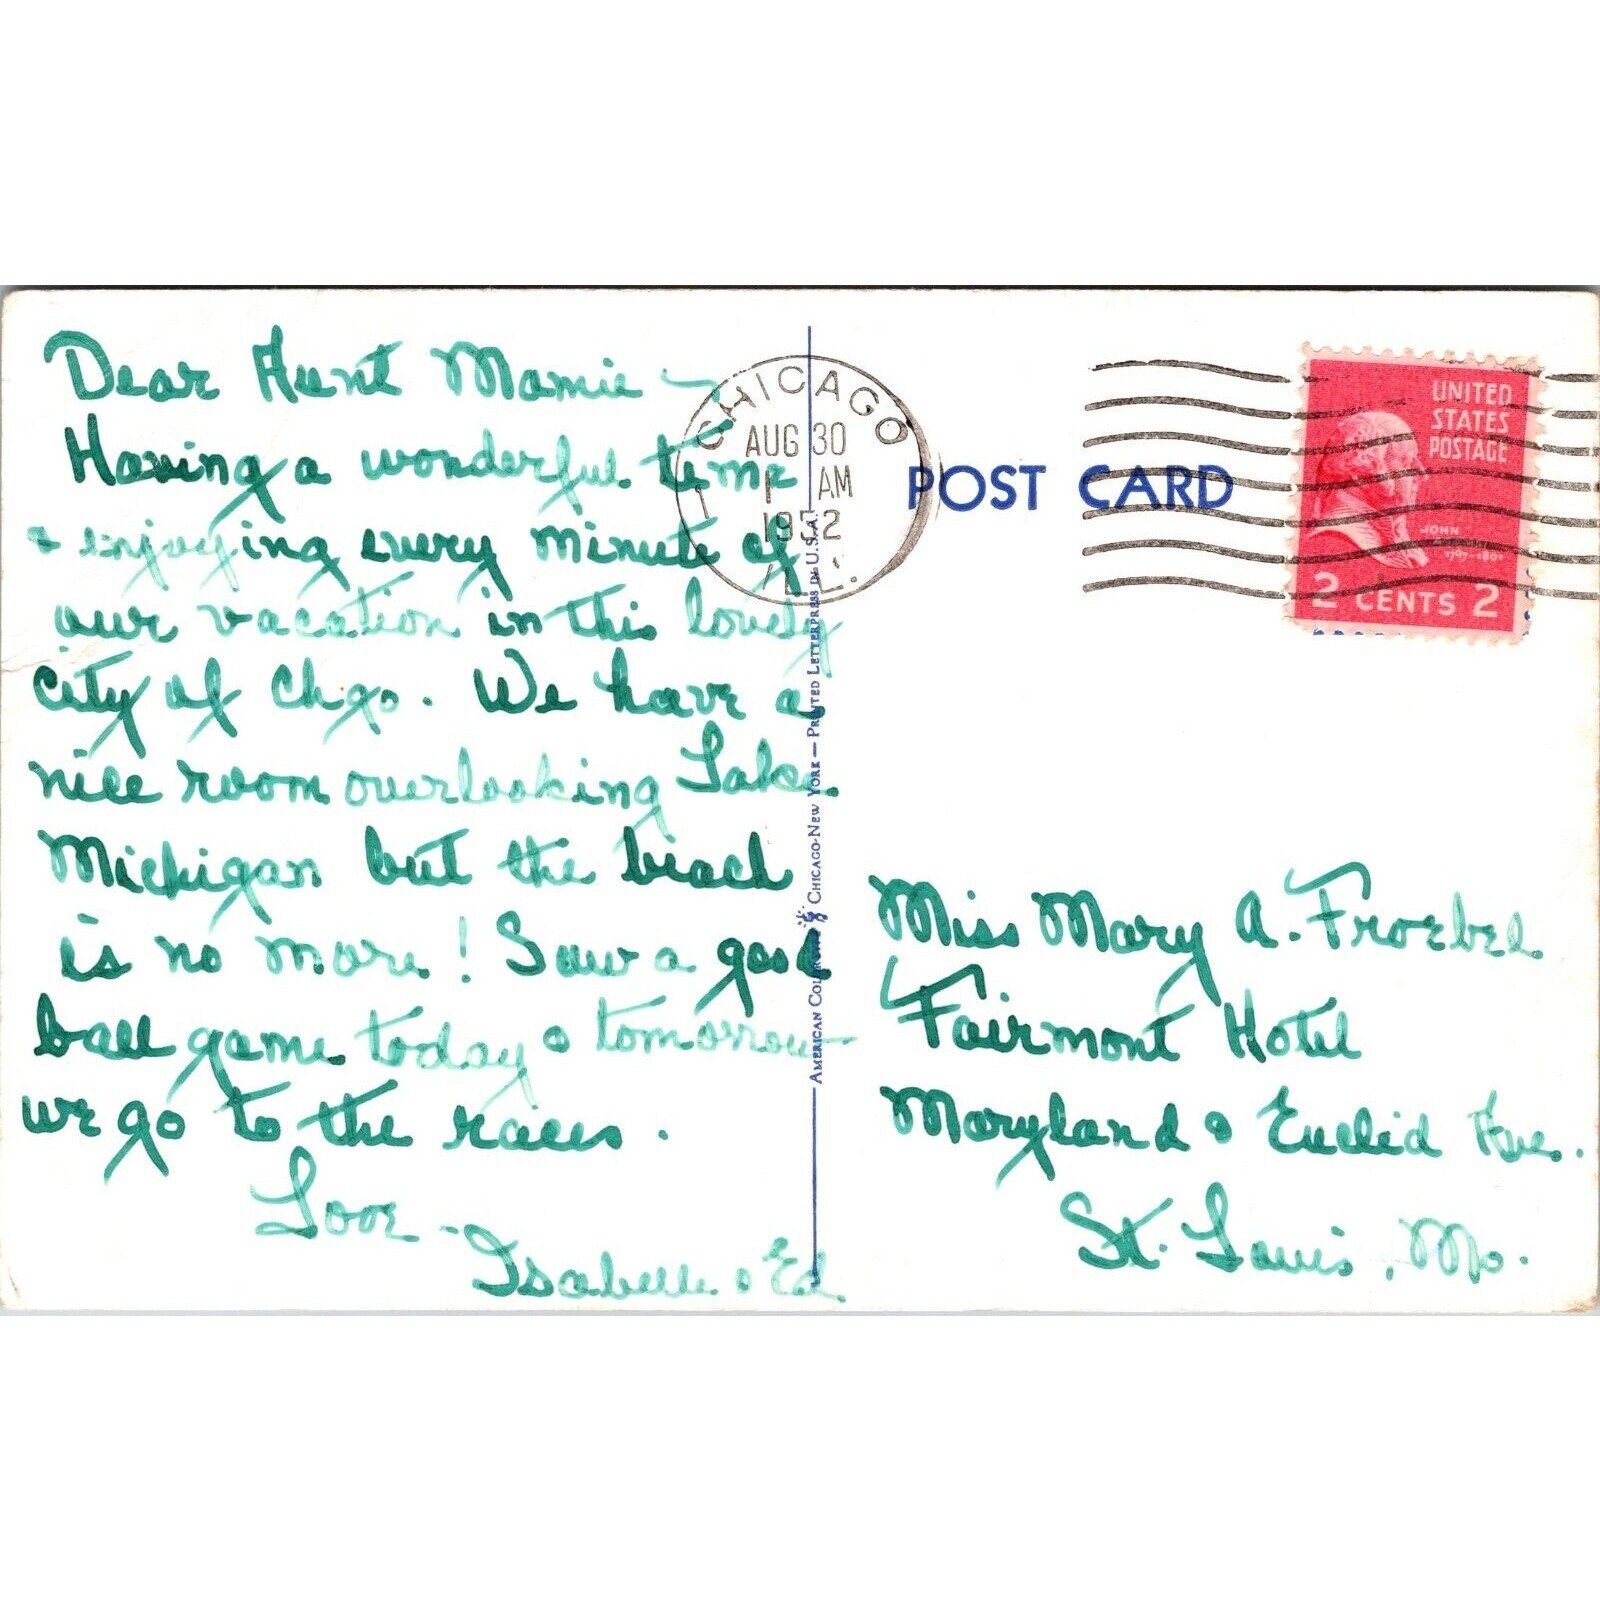 Dear Aunt Mamie -
Having a wonderful time
& enjoying every minute of
our vacation in this lovely
city of Chgo. We have a
nice room overlooking Lake
Michigan but the beach
is no more! Saw a good
ball game today & tomorrow
we go to the races.
Love -
Isabelle & Ed.
CHICAGO
AUG 30
1 AM
1952
ILL.
AMERICAN COLORTYPE CHICAGO-NEW YORK — PRINTED LETTERPRESS IN U.S.A.
POST CARD
UNITED
STATES
POSTAGE
JOHN
2 CENTS 2
Miss Mary A. Froebel
Fairmont Hotel
Maryland & Euclid Ave.
St. Louis, Mo.